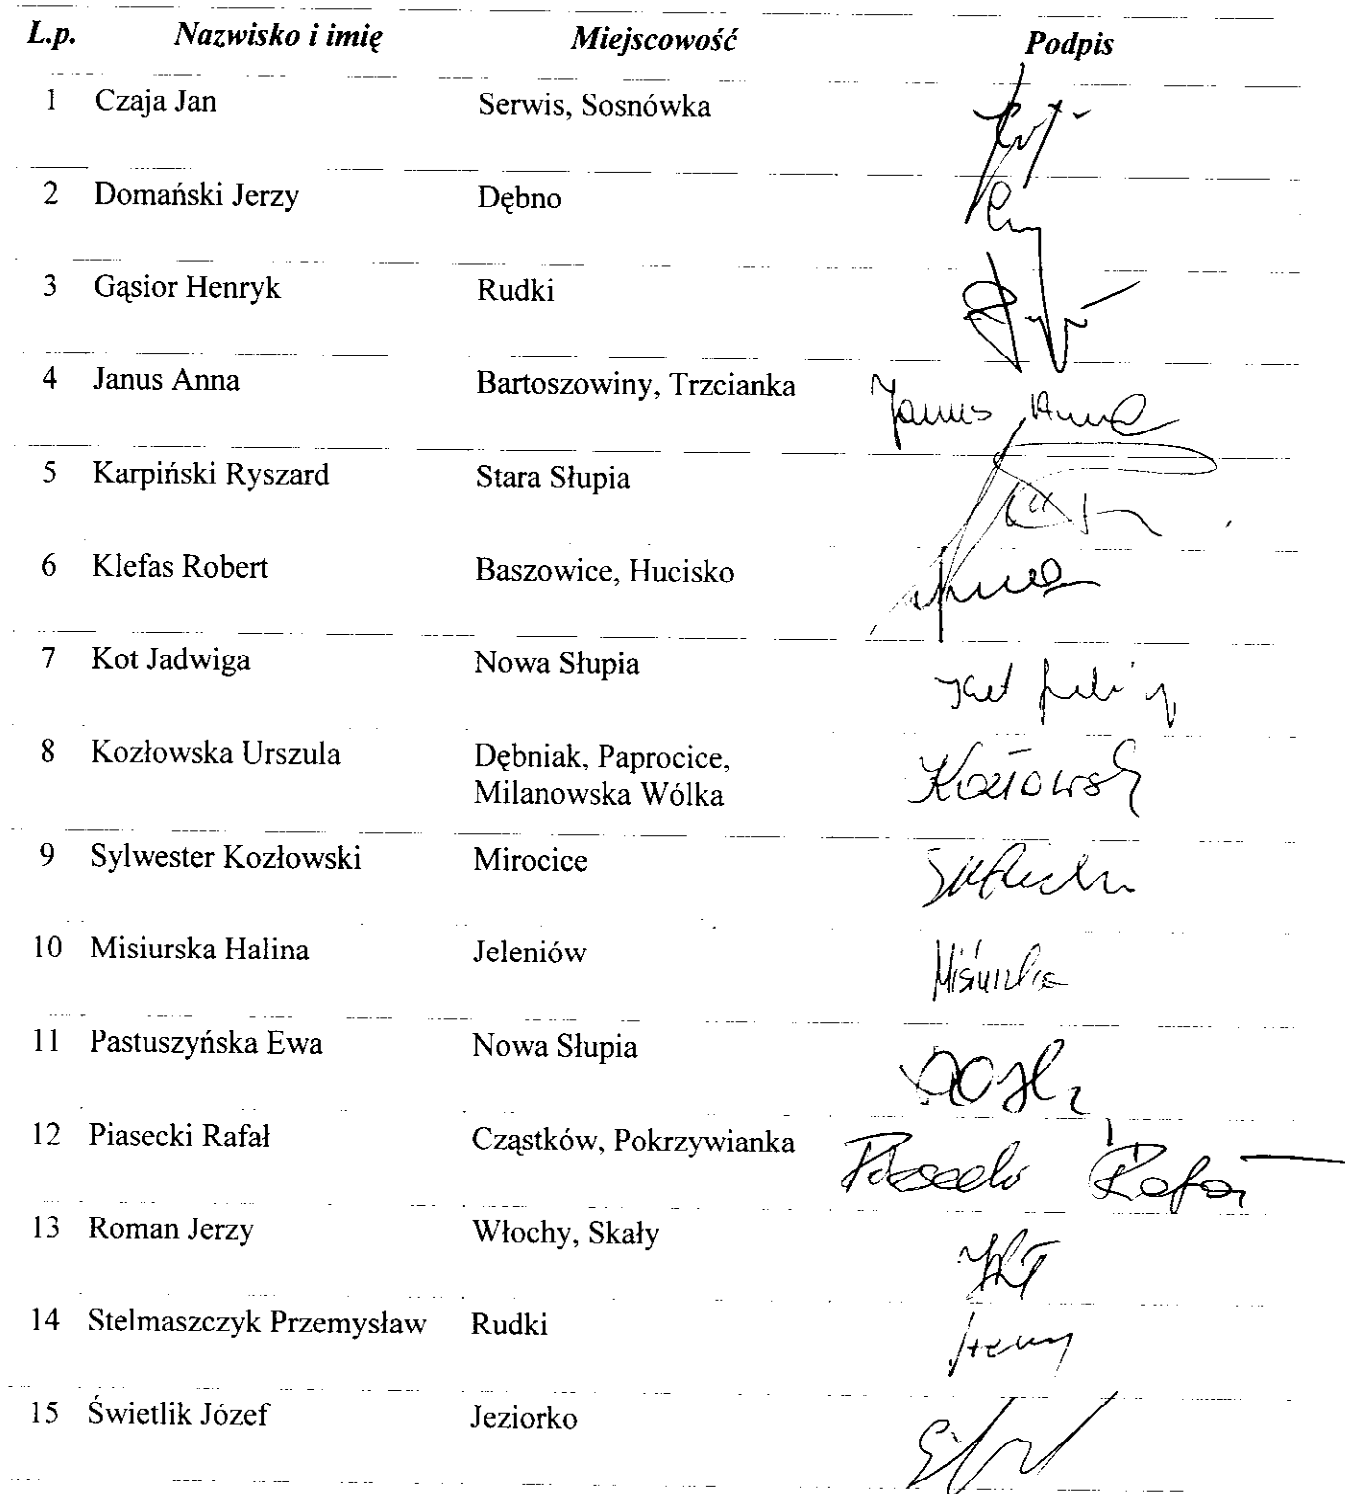 L.p. Nazwisko i imię Miejscowość Podpis
1 Czaja Jan Serwis, Sosnówka
2 Domański Jerzy Dębno
3 Gąsior Henryk Rudki
4 Janus Anna Bartoszowiny, Trzcianka Janus Anna
5 Karpiński Ryszard Stara Słupia
6 Klefas Robert Baszowice, Hucisko
7 Kot Jadwiga Nowa Słupia Kot
8 Kozłowska Urszula Dębniak, Paprocice,
Milanowska Wólka
9 Sylwester Kozłowski Mirocice
10 Misiurska Halina Jeleniów Misiurska
11 Pastuszyńska Ewa Nowa Słupia
12 Piasecki Rafał Cząstków, Pokrzywianka Piasecki Rafał
13 Roman Jerzy Włochy, Skały
14 Stelmaszczyk Przemysław Rudki
15 Świetlik Józef Jeziorko